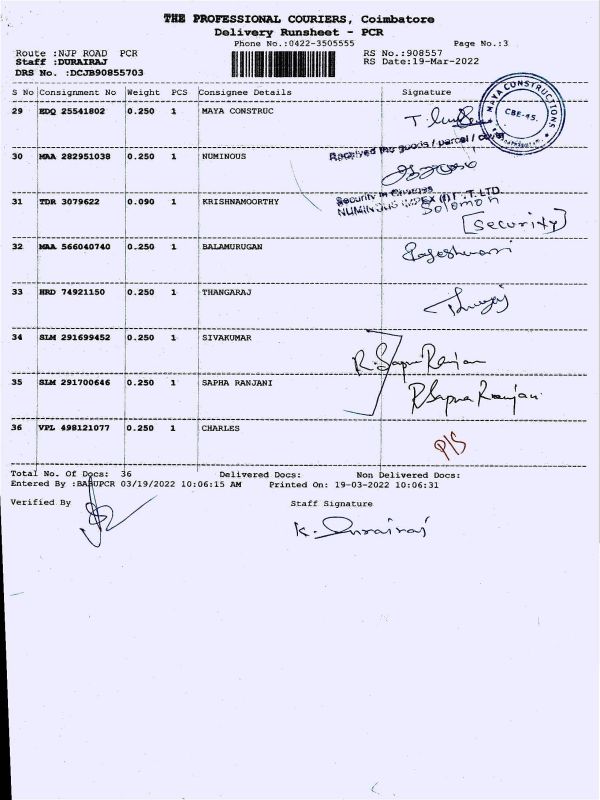 THE PROFESSIONAL COURIERS, Coimbatore
Delivery Runsheet - PCR
Phone No.:0422-3505555 Page No.:3
Route :NJP ROAD PCR RS No.:908557
Staff :DURAIRAJ RS Date:19-Mar-2022
DRS No. :DCJB90855703
S No Consignment No Weight PCS Consignee Details Signature
29 EDQ 25541802 0.250 1 MAYA CONSTRUC
MAYA CONSTRUCTIONS
CBE-45.
Received the goods / parcel / cover
30 MAA 282951038 0.250 1 NUMINOUS
Security in Charge
31 TDR 3079622 0.090 1 KRISHNAMOORTHY
NUMINOUS IMPEX (I) P.T. LTD.
Solomon
[Security]
32 MAA 566040740 0.250 1 BALAMURUGAN
Rajeshwari
33 HRD 74921150 0.250 1 THANGARAJ
34 SLM 291699452 0.250 1 SIVAKUMAR
R. Sapna Ranjan
35 SLM 291700646 0.250 1 SAPHA RANJANI
R Sapna Ranjan
36 VPL 498121077 0.250 1 CHARLES
P/S
Total No. Of Docs: 36 Delivered Docs: Non Delivered Docs:
Entered By :BABUPCR 03/19/2022 10:06:15 AM Printed On: 19-03-2022 10:06:31
Verified By Staff Signature
K. Durairaj